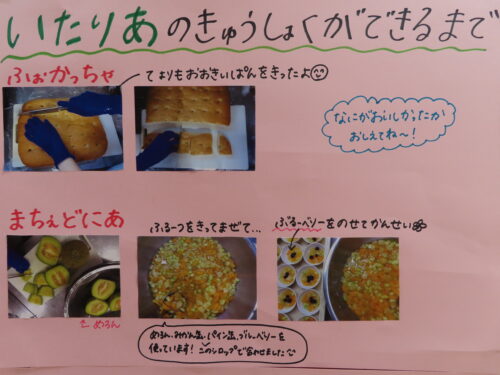 いたりあのきゅうしょくができるまで
ふぉかっちゃ
てよりもおおきいぱんをきったよ
なにがおいしかったか
おしえてね～！
まちぇどにあ
ふるーつをきってまぜて…
ぶるーべりーをのせてかんせい
めろん
めろん、みかん缶、パイン缶、ブルーベリーを
使っています！このシロップで合わせました